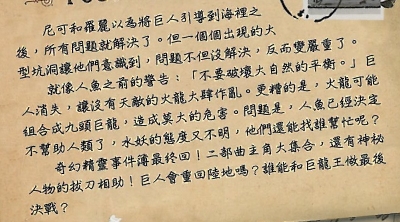 尼可和羅麗以為將巨人引導到海裡之
後，所有問題就解決了。但一個個出現的大
型坑洞讓他們意識到，問題不但沒解決，反而變嚴重了。
就像人魚之前的警告：「不要破壞大自然的平衡。」巨
人消失，讓沒有天敵的火龍大肆作亂。更糟的是，火龍可能
組合成九頭巨龍，造成莫大的危害。問題是，人魚已經決定
不幫助人類了，水妖的態度又不明，他們還能找誰幫忙呢？
奇幻精靈事件簿最終回！二部曲主角大集合，還有神秘
人物的拔刀相助！巨人會重回陸地嗎？誰能和巨龍王做最後
決戰？